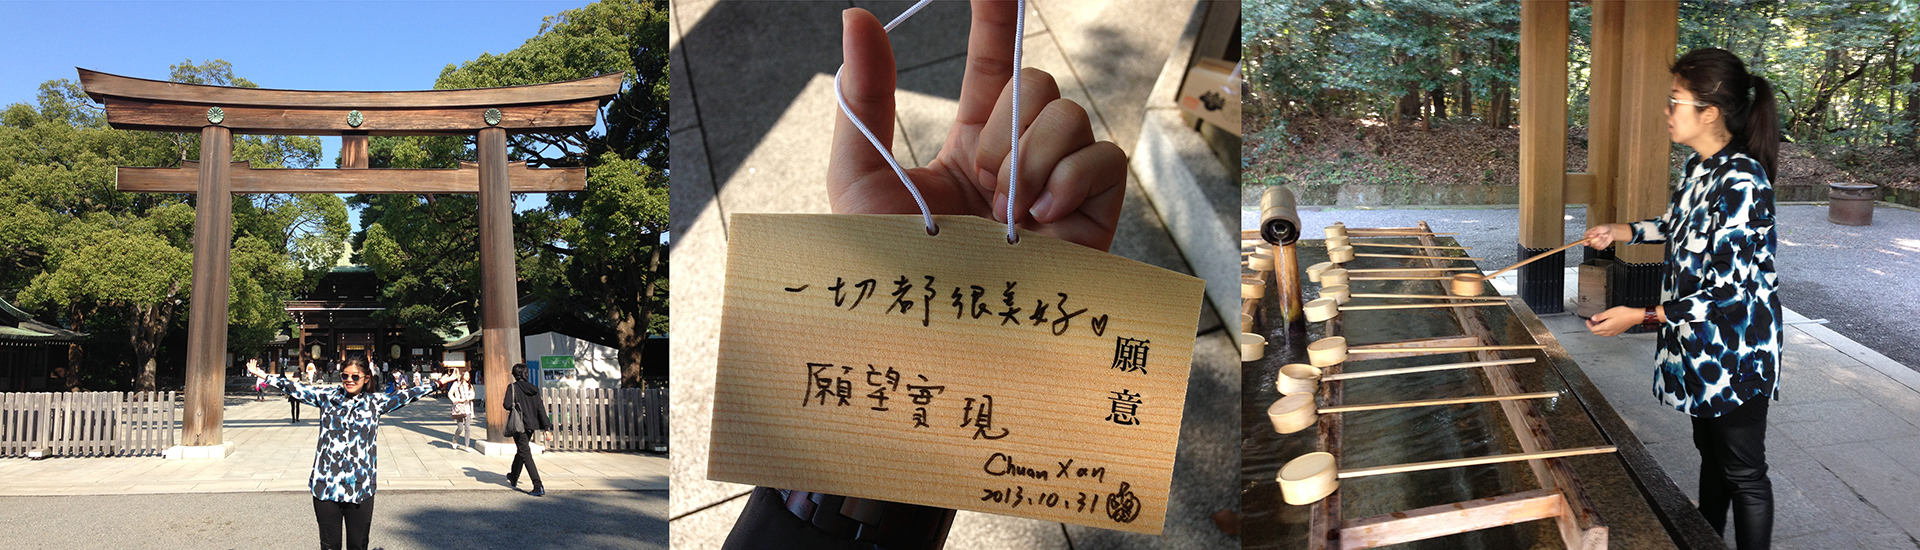 一切都很美好。
願望實現
願意
Chuan Xan
2013.10.31